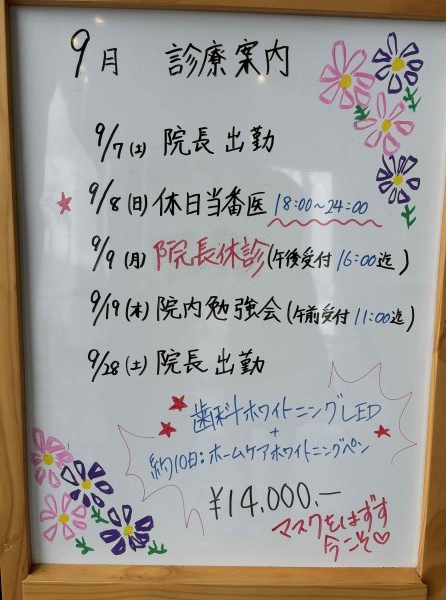 9月 診療案内
9/7(土) 院長 出勤
9/8(日) 休日当番医 18:00~24:00
9/9(月) 院長休診 (午後受付 16:00迄)
9/19(木) 院内勉強会 (午前受付 11:00迄)
9/28(土) 院長 出勤
歯科ホワイトニングLED
+
約10日:ホームケアホワイトニングペン
¥14,000.-
マスクをはずす
今こそ♡